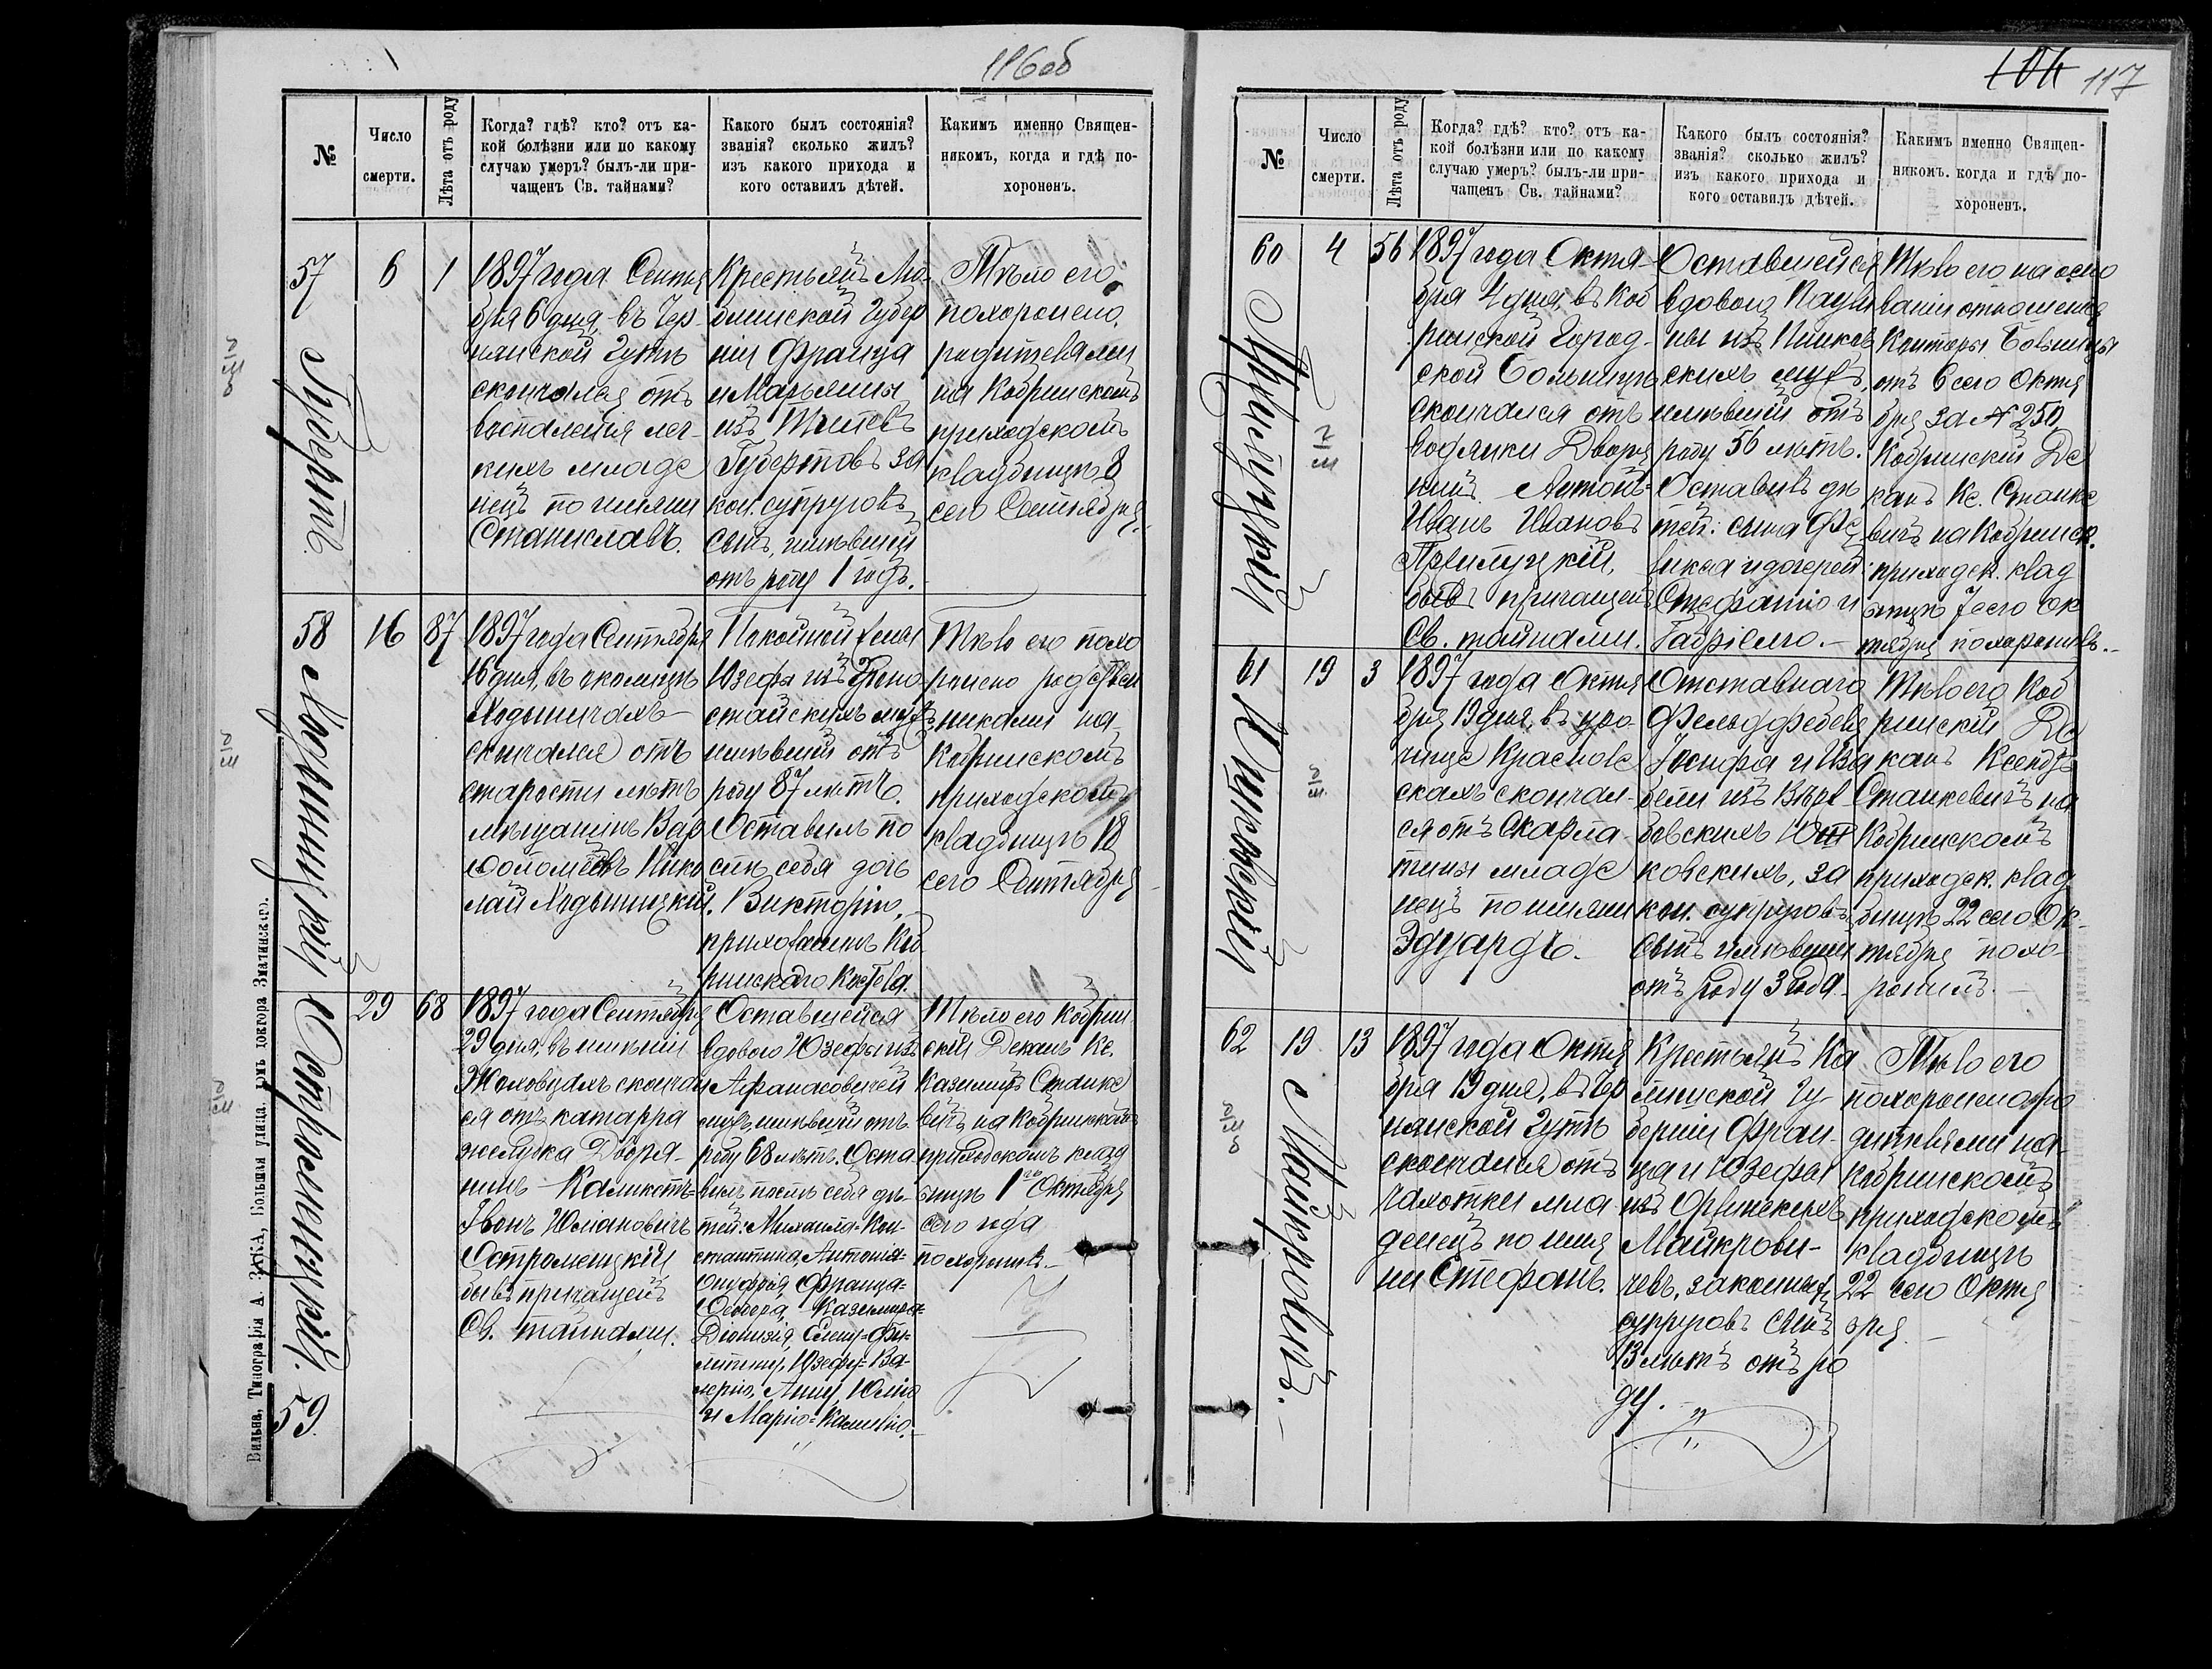 116 об
№
Число
смерти.
Лѣта отъ роду
Когда? гдѣ? кто? отъ ка-
кой болѣзни или по какому
случаю умеръ? былъ-ли при-
чащенъ Св. тайнами?
Какого былъ состоянія?
званія? сколько жилъ?
изъ какого прихода и
кого оставилъ дѣтей.
Какимъ именно Священ-
никомъ, когда и гдѣ по-
хороненъ.
57
Губертъ
6
1
1897 года Сентя
бря 6 дня, въ Чер-
нянской Гутѣ
скончался отъ
воспаленія лег-
кихъ младе
нецъ по имени
Станиславъ.
Крестьянъ Лю-
блинской Губер
ніи Франца
и Марьянны
изъ
Губертовъ за
кон. супруговъ
сынъ, имѣвшій
отъ роду 1 годъ.
Тѣло его
похоронено
родителями
на Кобринскомъ
приходскомъ
кладбищѣ 8
сего Сентября.
58
Ходыницкій
16
87
1897 года Сентября
16 дня, въ околицѣ
Ходыничахъ
скончался отъ
старости лѣтъ
мѣщанинъ Вар
ѳоломѣй Нико
лай Ходыницкій.
Покойной жены
Юзефы изъ
мужъ,
имѣвшій отъ
роду 87 лѣтъ.
Оставилъ по
слѣ себя дочь
Викторію,
прихожанинъ Коб
ринскаго Костела.
Тѣло его похо
ронено родствен
никами на
Кобринскомъ
приходскомъ
кладбищѣ 18
сего Сентября
59
Остромецкій.
29
68
1897 года Сентября
29 дня, въ имѣніи
Жоловудахъ сконча
ся отъ катарра
желудка Дворя-
нинъ Каликстъ=
Іванъ Юліановичъ
Остромецкій
бывъ причащенъ
Св. тайнами.
Оставшейся
вдовою Юзефы изъ
Афанасовичей
мужъ, имѣвшій отъ
роду 68 лѣтъ. Оста-
вилъ послѣ себя дѣ-
тей: Михаила=Кон-
стантина, Антонія=
Онуфрія, Франца=
Исидора, Казимира=
Діонизія, Елену=Фи-
липину, Юзефу=Ва-
лерію, Анну, Юлію
и Марію=Камилію.
Тѣло его Кобрин
скій Деканъ Кс.
Казимиръ Станке
вичъ на Кобринскомъ
приходскомъ клад
бищѣ 1го Октября
сего года
похоронилъ.
Вильна, Типографія А. ЗАКА, Большая улица, домъ доктора Змачинскаго.
104 117
№
Число
смерти.
Лѣта отъ роду
Когда? гдѣ? кто? отъ ка-
кой болѣзни или по какому
случаю умеръ? былъ-ли при-
чащенъ Св. тайнами?
Какого былъ состоянія?
званія? сколько жилъ?
изъ какого прихода и
кого оставилъ дѣтей.
Какимъ именно Священ-
никомъ. когда и гдѣ по-
хороненъ.
60
Прилуцкій
4
56
1897 года Октя-
бря 4 дня, въ Коб
ринской Город-
ской Больницѣ
скончался отъ
водянки Дворя
нинъ Антонъ=
Иванъ Ивановъ
Прилуцкій,
бывъ причащенъ
Св. тайнами.
Оставшейся
вдовою Паули
ны изъ
скихъ мужъ,
имѣвшій отъ
роду 56 лѣтъ.
Оставивъ дѣ
тей: сына Фе
ликса и дочерей:
Стефанію и
Габріелю.
Тѣло его на осно
ваніи отношенія
Конторы Больницы
отъ 6 сего Октя
бря за № 250,
Кобринскій Де
канъ Кс. Станке
вичъ на Кобринск.
приходск. клад
бищѣ 7 сего Ок
тября похоронилъ.
61
Ютковскій
19
3
1897 года Октя
бря 19 дня, въ уро
чище Красновс
скахъ скончал-
ся отъ Скарла
тины младе
нецъ по имени
Эдуардъ.
Отставнаго
Фельдфебеля
Іосифа и Иза
бели изъ
Ют
ковскихъ, за
кон. супруговъ
сынъ имѣвшій
отъ роду 3 года
Тѣло его Коб
ринскій Де
канъ Ксендзъ
Станкевичъ на
Кобринскомъ
приходск. клад
бищѣ 22 сего Ок-
тября похо-
ронилъ.
62
Майкровичъ.
19
13
1897 года Октя
бря 19 дня, въ Чер
нянской Гутѣ
скончался отъ
чахотки мла
денецъ по име
ни Стефанъ.
Крестьянъ Ка
лишской Гу-
берніи Фран-
ца и Юзефы
изъ
Майкрови-
чевъ, законныхъ
супруговъ сынъ
13 лѣтъ отъ ро
ду.
Тѣло его
похоронено ро
дителями на
Кобринскомъ
приходскомъ
кладбищѣ
22 сего Октя
бря.